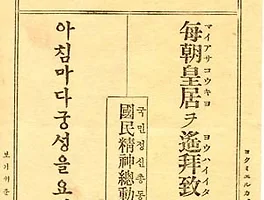 ヨクミエルカ
マイアサコウキヨ ヨウハイイタ
每朝皇居ヲ遙拜致
국민정신총동
國民精神總動
아침마다궁성을요
보기쉬